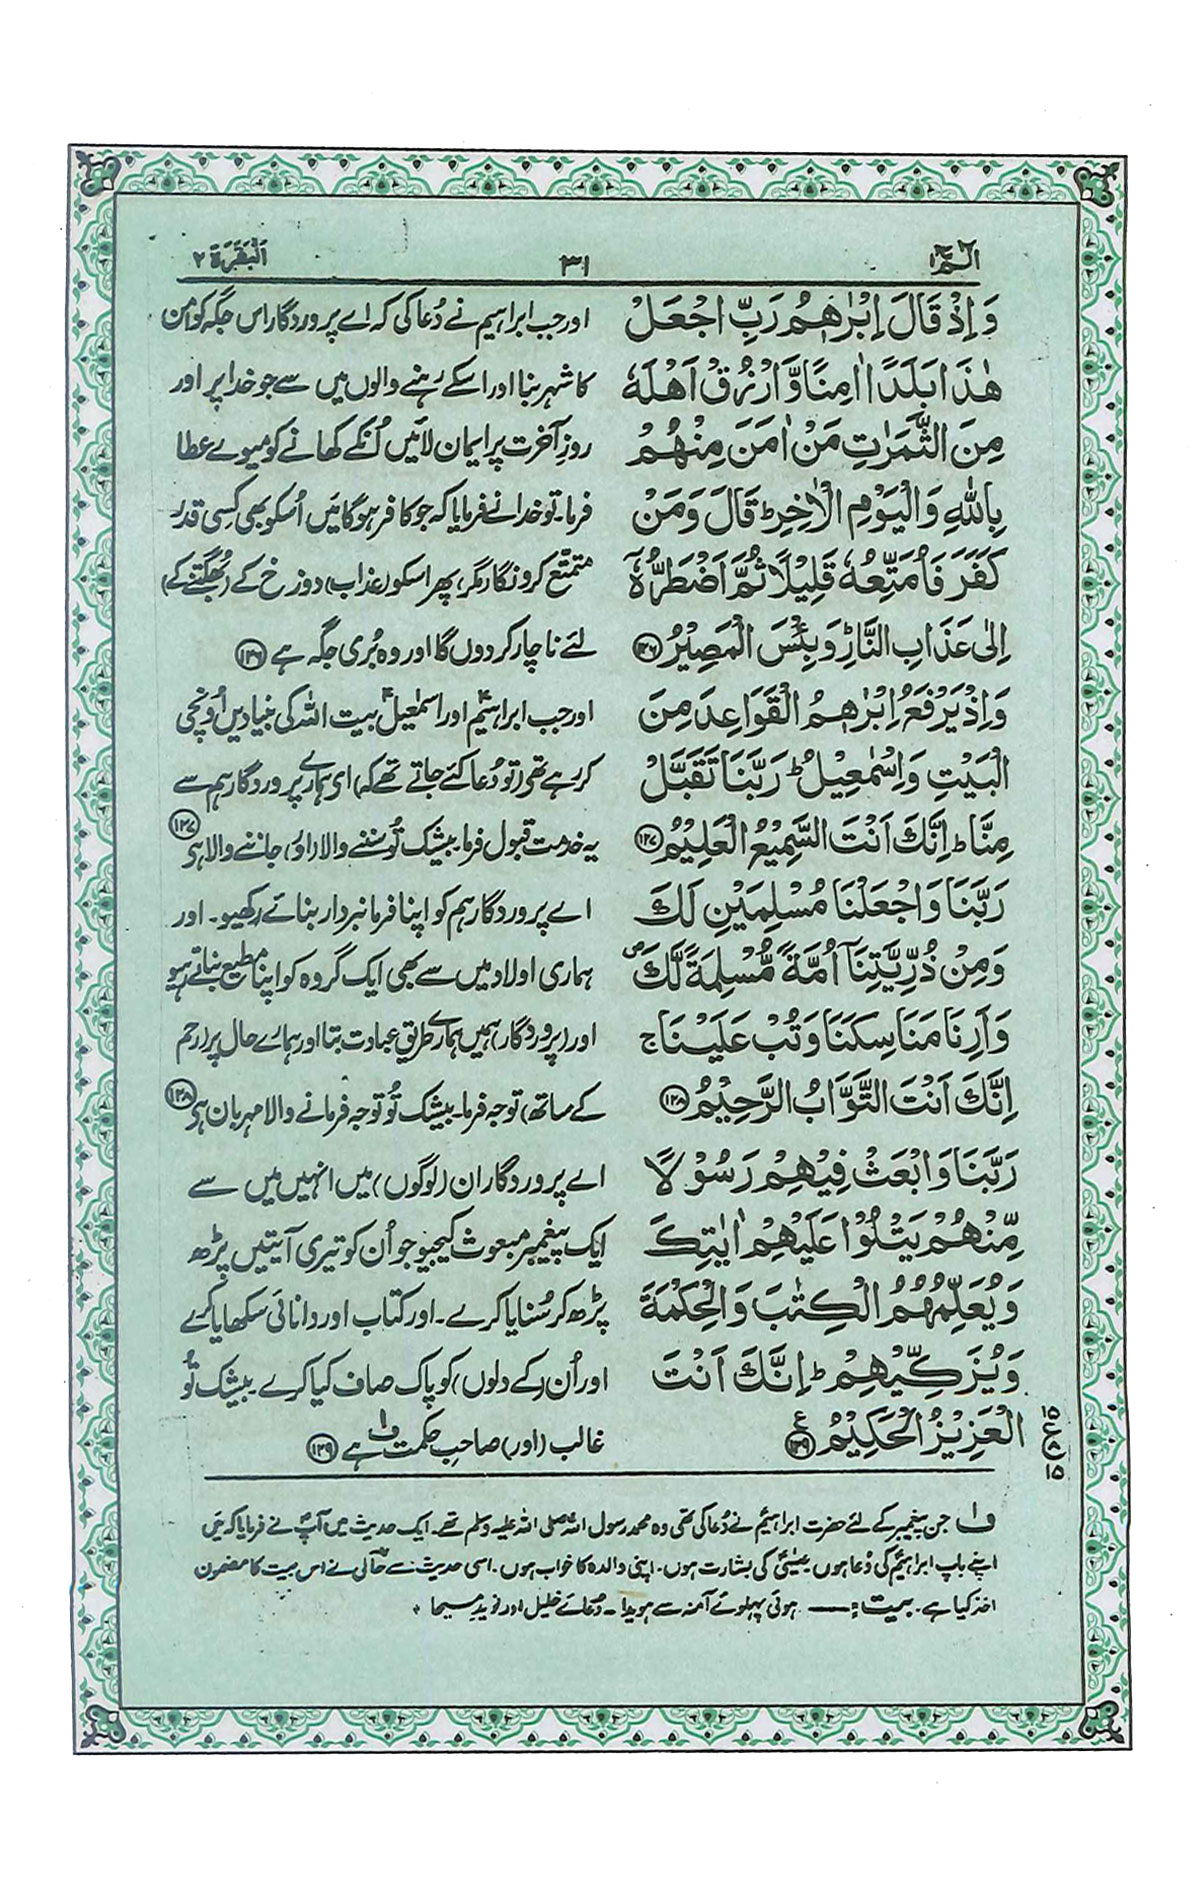 الٓمّٓ ۱
۳۱
اَلْبَقَرَة ۲
وَاِذْ قَالَ اِبْرٰهٖمُ رَبِّ اجْعَلْ
هٰذَا بَلَدًا اٰمِنًا وَّارْزُقْ اَهْلَهٗ
مِنَ الثَّمَرٰتِ مَنْ اٰمَنَ مِنْهُمْ
بِاللّٰهِ وَالْيَوْمِ الْاٰخِرِ ؕ قَالَ وَمَنْ
كَفَرَ فَاُمَتِّعُهٗ قَلِيْلًا ثُمَّ اَضْطَرُّهٗٓ
اِلٰى عَذَابِ النَّارِ ؕ وَبِئْسَ الْمَصِيْرُ ﴿۱۲۶﴾
وَاِذْ يَرْفَعُ اِبْرٰهٖمُ الْقَوَاعِدَ مِنَ
الْبَيْتِ وَاِسْمٰعِيْلُ ؕ رَبَّنَا تَقَبَّلْ
مِنَّا ؕ اِنَّكَ اَنْتَ السَّمِيْعُ الْعَلِيْمُ ﴿۱۲۷﴾
رَبَّنَا وَاجْعَلْنَا مُسْلِمَيْنِ لَكَ
وَمِنْ ذُرِّيَّتِنَآ اُمَّةً مُّسْلِمَةً لَّكَ ۪
وَاَرِنَا مَنَاسِكَنَا وَتُبْ عَلَيْنَا ۚ
اِنَّكَ اَنْتَ التَّوَّابُ الرَّحِيْمُ ﴿۱۲۸﴾
رَبَّنَا وَابْعَثْ فِيْهِمْ رَسُوْلًا
مِّنْهُمْ يَتْلُوْا عَلَيْهِمْ اٰيٰتِكَ
وَيُعَلِّمُهُمُ الْكِتٰبَ وَالْحِكْمَةَ
وَيُزَكِّيْهِمْ ؕ اِنَّكَ اَنْتَ
الْعَزِيْزُ الْحَكِيْمُ ﴿۱۲۹﴾ ع
۱۵
ع ۸
۱۵
اور جب ابراہیم نے دُعا کی کہ اے پروردگار اس جگہ کو امن
کا شہر بنا اور اسکے رہنے والوں میں سے جو خدا پر اور
روزِ آخرت پر ایمان لائیں اُنکے کھانے کو میوے عطا
فرما۔ تو خدا نے فرمایا کہ جو کافر ہوگا میں اُسکو بھی کسی قدر
متمتّع کرونگا (مگر) پھر اسکو (عذاب) دوزخ کے (بھگتنے کے)
لئے ناچار کردوں گا اور وہ بُری جگہ ہے ﴿۱۲۶﴾
اور جب ابراہیمؑ اور اسمٰعیلؑ بیت اللہ کی بنیادیں اُونچی
کر رہے تھے (تو دُعا کئے جاتے تھے کہ) ای ہمارے پروردگار ہم سے
یہ خدمت قبول فرما۔ بیشک تُو سُننے والا (اور) جاننے والا ہی ﴿۱۲۷﴾
اے پروردگار ہم کو اپنا فرمانبردار بنائے رکھیو۔ اور
ہماری اولاد میں سے بھی ایک گروہ کو اپنا مطیع بناتے رہیو
اور (پروردگار) ہمیں ہمارے طریقِ عبادت بتا اور ہمارے حال پر (رحم
کے ساتھ) توجہ فرما۔ بیشک تُو توجہ فرمانے والا مہربان ہی ﴿۱۲۸﴾
اے پروردگار ان (لوگوں) میں انہیں میں سے
ایک پیغمبر مبعوث کیجیو جو اُن کو تیری آیتیں پڑھ
پڑھ کر سُنایا کرے۔ اور کتاب اور دانائی سکھایا کرے
اور اُن (کے دلوں) کو پاک صاف کیا کرے بیشک تُو
غالب (اور) صاحبِ حکمت ہے ف۱ ﴿۱۲۹﴾
ف۱ جن پیغمبر کے لئے حضرت ابراہیمؑ نے دُعا کی تھی وہ محمد رسول اللہ صلی اللہ علیہ وسلم تھے۔ ایک حدیث میں آپؐ نے فرمایا کہ میں
اپنے باپ ابراہیمؑ کی دُعا ہوں عیسٰیؑ کی بشارت ہوں۔ اپنی والدہ کا خواب ہوں۔ اسی حدیث سے حالی نے اس بیت کا مضمون
اخذ کیا ہے۔ بیت :۔ ہوئی پہلوئے آمنہ سے ہویدا ۔ دُعائے خلیل اور نویدِ مسیحا